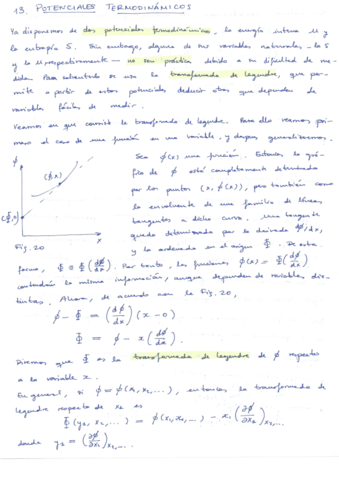 13. POTENCIALES TERMODINÁMICOS
Ya disponemos de dos potenciales termodinámicos, la energía interna U y
la entropía S. Sin embargo, alguna de sus variables naturales — la S
y la U respectivamente — no son prácticas debido a su dificultad de me-
dida. Para solventarlo se usa la transformada de Legendre, que per-
mite a partir de estos potenciales deducir otros que dependan de
variables fáciles de medir.
Veamos en qué consiste la transformada de Legendre. Para ello veamos pri-
mero el caso de una función en una variable, y después generalicemos.
Sea φ(x) una función. Entonces la grá-
fica de φ está completamente determinada
por los puntos (x, φ(x)), pero también como
la envolvente de una familia de líneas
tangentes a dicha curva. Una tangente
queda determinada por la derivada dφ/dx,
y la ordenada en el origen Φ. De esta
φ
(φ,x)
x
Fig. 20
forma, Φ ≡ Φ(dφ/dx). Por tanto, las funciones φ(x) = Φ(dφ/dx)
contendrán la misma información, aunque dependen de variables dis-
tintas. Ahora, de acuerdo con la Fig. 20,
φ - Φ = (dφ/dx)(x - 0)
Φ = φ - x(dφ/dx).
Diremos que Φ es la transformada de Legendre de φ respecto
a la variable x.
En general, si φ = φ(x₁, x₂, ...), entonces la transformada de
Legendre respecto de x₂ es
Φ(y₂, x₂, ...) = φ(x₁, x₂, ...) - x₁(∂φ/∂x₂)x₂,...
donde y₂ = (∂φ/∂x₁)x₂,...